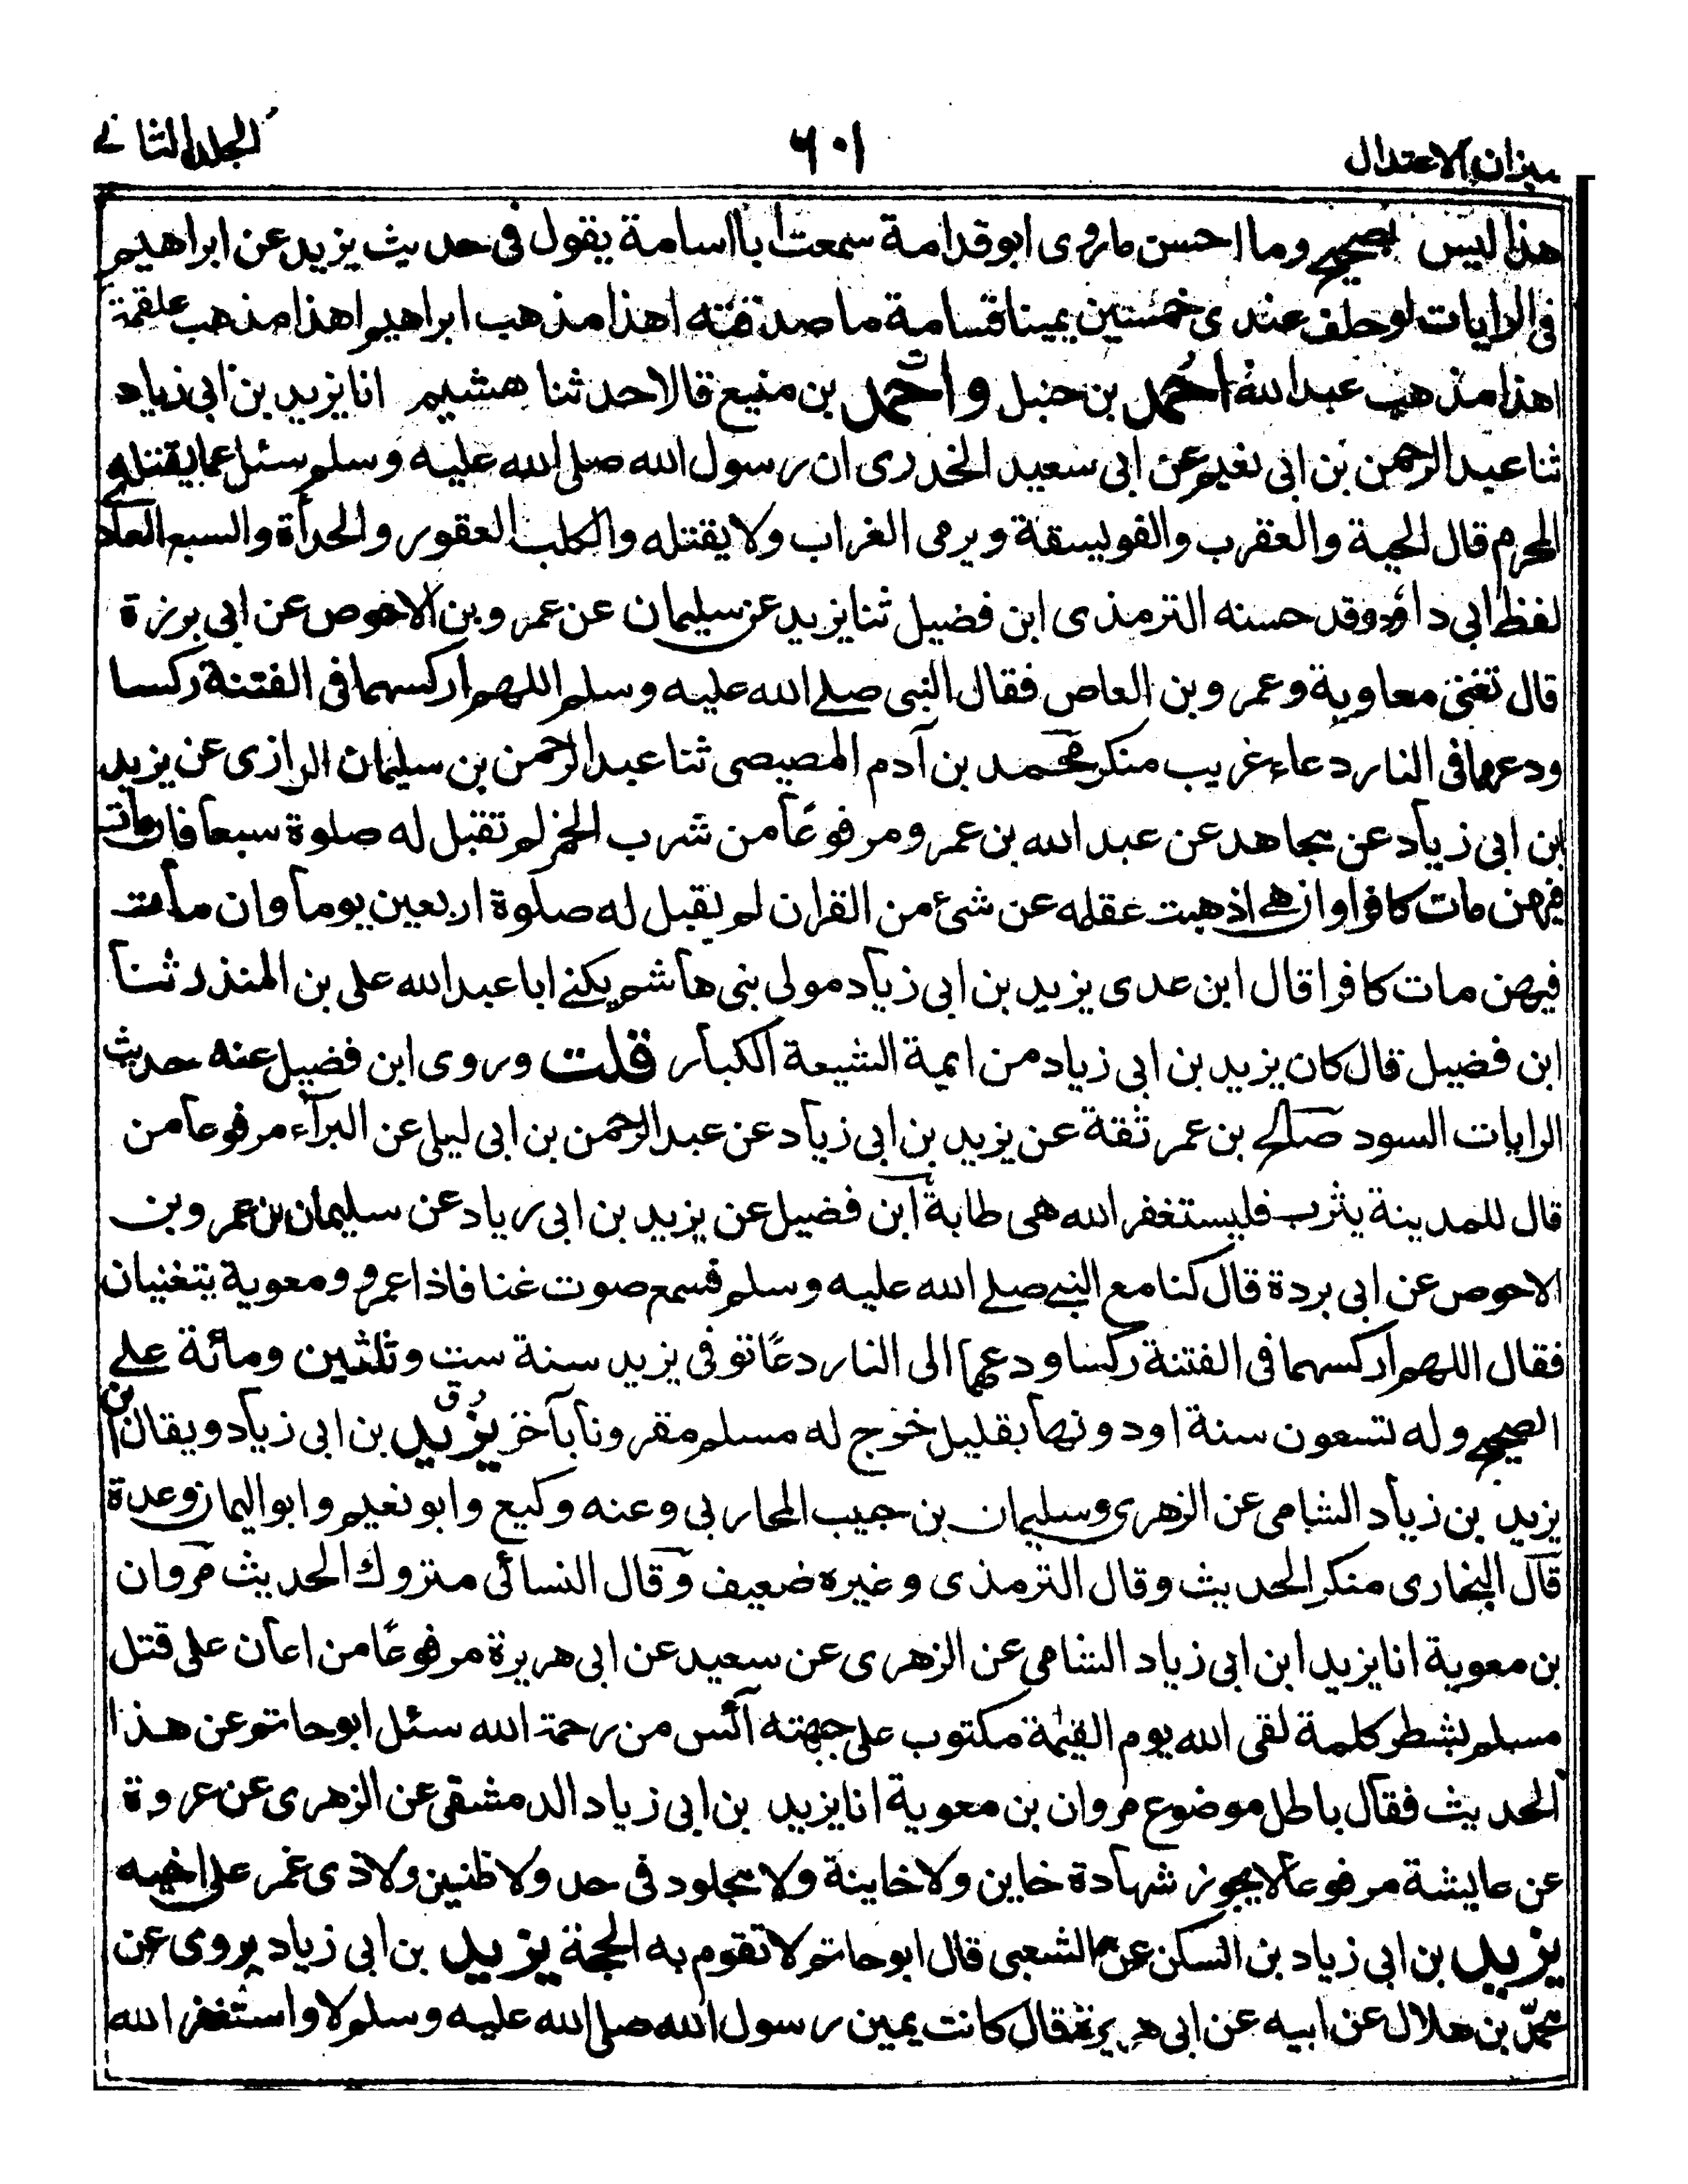 ميزان الاعتدال
٦٠١
الجلد الثاني
هذا ليس بصحيح وما احسن ما روى ابو قدامة سمعت ابا اسامة يقول فى حديث يزيد عن ابراهيم
فى الرايات لو حلف عندى خمسين يمينا قسامة ما صدقته اهذا مذهب ابراهيم اهذا مذهب علقمة
اهذا مذهب عبد الله احمد بن حنبل واحمد بن منيع قالا حدثنا هشيم انا يزيد بن ابى زياد
ثنا عبد الرحمن بن ابى نعيم عن ابى سعيد الخدرى ان رسول الله صلى الله عليه وسلم سئل عما يقتله
المحرم قال الحية والعقرب والفويسقة ويرمى الغراب ولا يقتله والكلب العقور والحدأة والسبع العادى
لفظ ابى داود وقد حسنه الترمذى ابن فضيل ثنا يزيد عن سليمان عن عمرو بن الاحوص عن ابى برزة
قال تغنى معاوية وعمرو بن العاص فقال النبى صلى الله عليه وسلم اللهم اركسهما فى الفتنة ركسا
ودعهما فى النار دعاء غريب منكر محمد بن آدم المصيصى ثنا عبد الرحمن بن سليمان الرازى عن يزيد
بن ابى زياد عن مجاهد عن عبد الله بن عمرو مرفوعاً من شرب الخمر لم تقبل له صلوة سبعا فان مات
فيهن مات كافرا وان هى اذهبت عقله عن شئ من القران لم يقبل له صلوة اربعين يوما وان مات
فيهن مات كافرا قال ابن عدى يزيد بن ابى زياد مولى بنى هاشم يكنے ابا عبد الله على بن المنذر ثنا
ابن فضيل قال كان يزيد بن ابى زياد من ايمة الشيعة الكبار قلت وروى ابن فضيل عنه حديث
الرايات السود صالح بن عمر ثقة عن يزيد بن ابى زياد عن عبد الرحمن بن ابى ليلى عن البراء مرفوعا من
قال للمدينة يثرب فليستغفر الله هى طابة ابن فضيل عن يزيد بن ابى زياد عن سليمان بن عمرو بن
الاحوص عن ابى بردة قال كنا مع النبے صلے الله عليه وسلم فسمع صوت غنا فاذا عمرو ومعوية يتغنيان
فقال اللهم اركسهما فى الفتنة ركسا ودعهما الى النار دعًا توفى يزيد سنة ست وثلثين ومائة علے
الصحيح وله تسعون سنة او دونها بقليل خرج له مسلم مقرونا بآخر يزيد بن ابى زياد ويقال ابن
يزيد بن زياد الشامى عن الزهرى وسليمان بن حبيب المحاربى وعنه وكيع وابو نعيم وابو اليمان وعدة
قال البخارى منكر الحديث وقال الترمذى وغيره ضعيف وقال النسائى متروك الحديث مروان
بن معوية انا يزيد ابن ابى زياد الشامى عن الزهرى عن سعيد عن ابى هريرة مرفوعًا من اعان على قتل
مسلم بشطر كلمة لقى الله يوم القيمة مكتوب على جبهته آئس من رحمة الله سئل ابو حاتم عن هذا
الحديث فقال باطل موضوع مروان بن معوية انا يزيد بن ابى زياد الدمشقى عن الزهرى عن عروة
عن عايشة مرفوعا لا يجوز شهادة خاين ولا خاينة ولا مجلود فى حد ولا ظنين ولا ذى غمر على اخيه
يزيد بن ابى زياد بن السكن عن الشعبى قال ابو حاتم لا تقوم به الحجة يزيد بن ابى زياد يروى عن
محمد بن هلال عن ابيه عن ابى هريرة قال كانت يمين رسول الله صلى الله عليه وسلم لا واستغفر الله